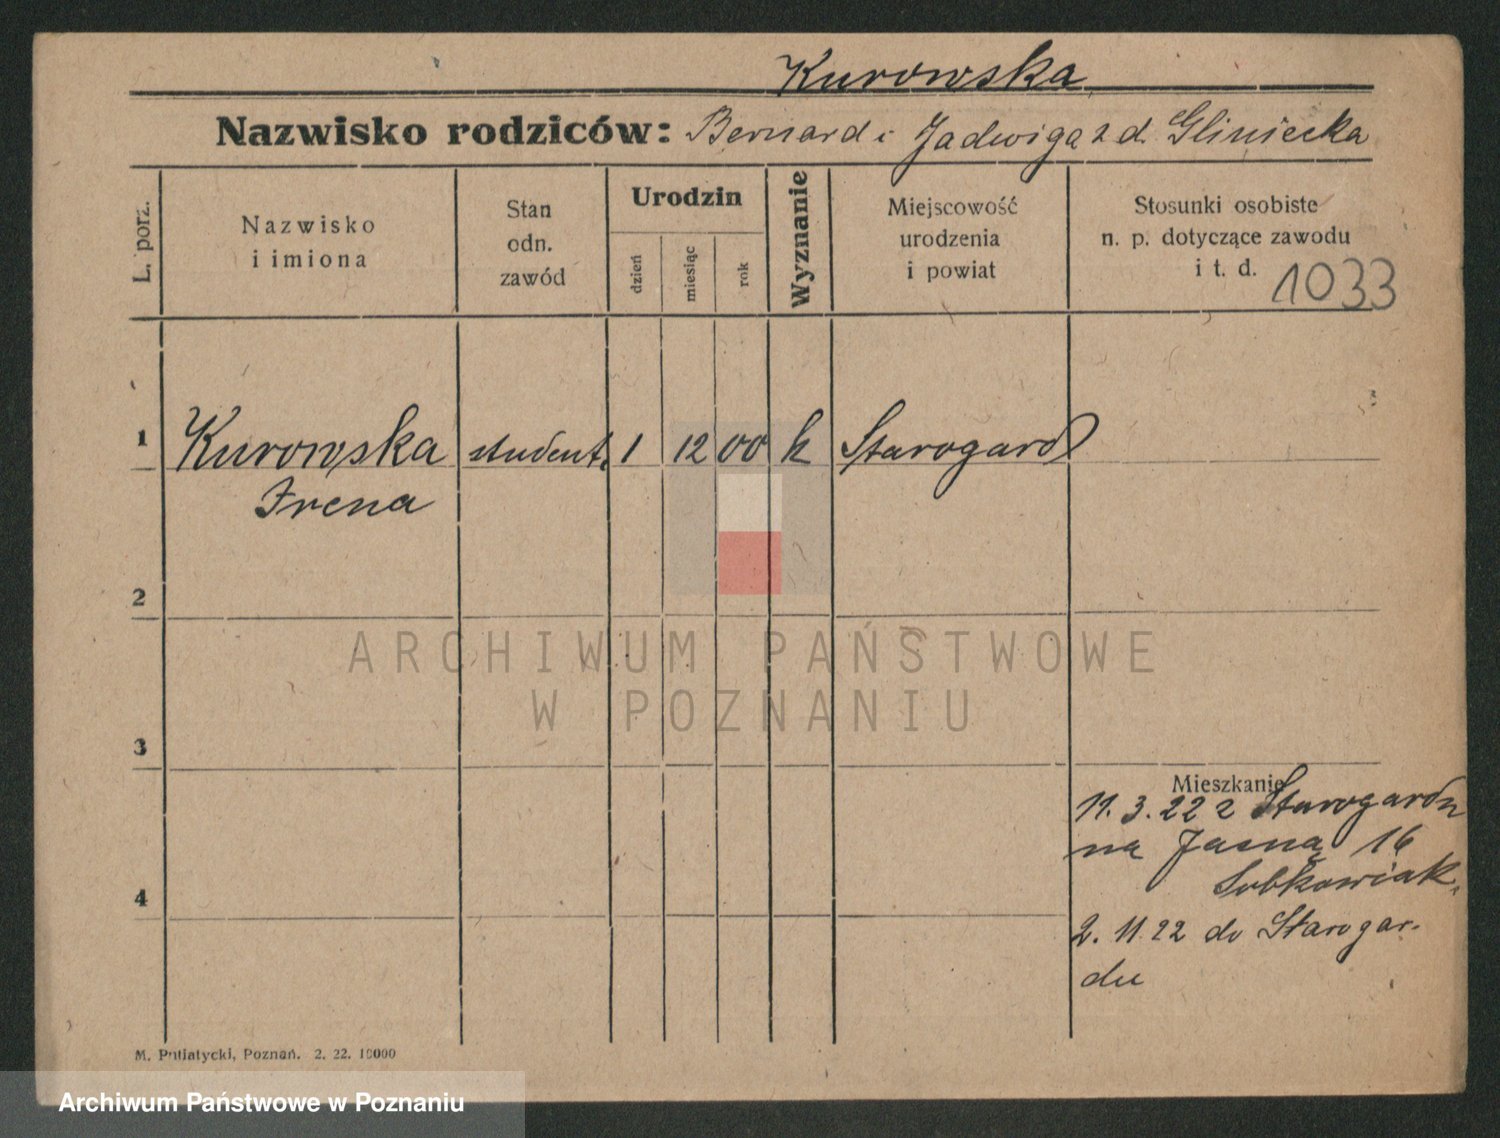 Kurowska
Nazwisko rodziców: Bernard i Jadwiga z d. Gliniecka
L. porz.
Nazwisko
i imiona
Stan
odn.
zawód
Urodzin
dzień
miesiąc
rok
Wyznanie
Miejscowość
urodzenia
i powiat
Stosunki osobiste
n. p. dotyczące zawodu
i t. d.
1033
1 Kurowska student. 1 12 00 k Starogard
Irena
2
ARCHIWUM PAŃSTWOWE
W POZNANIU
3
Mieszkanie
11. 3. 22 z Starogardu
na Jasną 16
Sobkowiak.
4
2. 11 22 do Starogar-
du
M. Putiatycki, Poznań. 2. 22. 10000
Archiwum Państwowe w Poznaniu